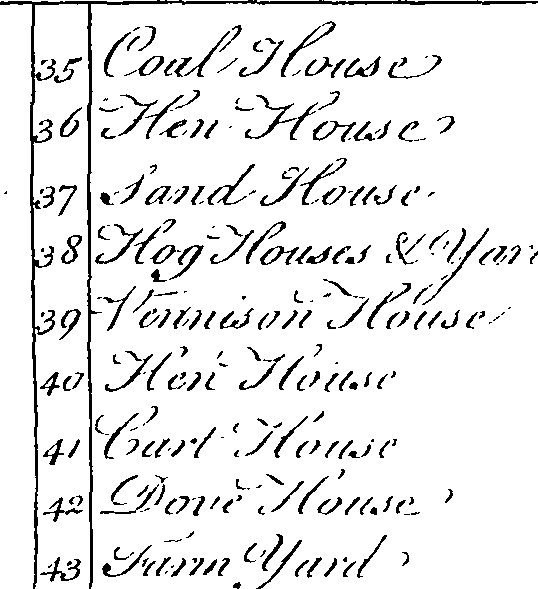 35 Coal House
36 Hen House
37 Sand House
38 Hog Houses & Yar
39 Vennison House
40 Hen House
41 Cart House
42 Dove House
43 Farm Yard